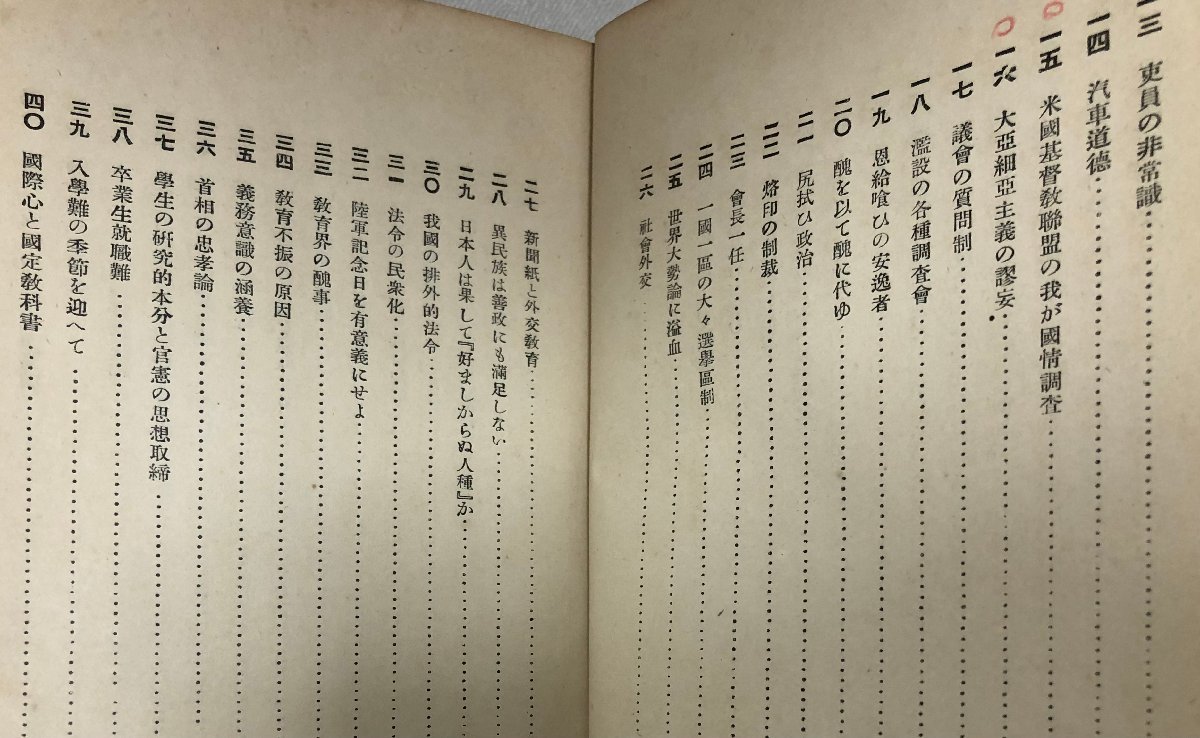 一三 吏員の非常識
一四 汽車道德
一五 米國基督敎聯盟の我が國情調査
一六 大亞細亞主義の謬妄
一七 議會の質問制
一八 濫設の各種調査會
一九 恩給喰ひの安逸者
二〇 醜を以て醜に代ゆ
二一 尻拭ひ政治
二二 烙印の制裁
二三 會長一任
二四 一國一區の大々選擧區制
二五 世界大勢論に溢血
二六 社會外交
二七 新聞紙と外交敎育
二八 異民族は善政にも滿足しない
二九 日本人は果して『好ましからぬ人種』か
三〇 我國の排外的法令
三一 法令の民衆化
三二 陸軍記念日を有意義にせよ
三三 敎育界の醜事
三四 敎育不振の原因
三五 義務意識の涵養
三六 首相の忠孝論
三七 學生の硏究的本分と官憲の思想取締
三八 卒業生就職難
三九 入學難の季節を迎へて
四〇 國際心と國定敎科書